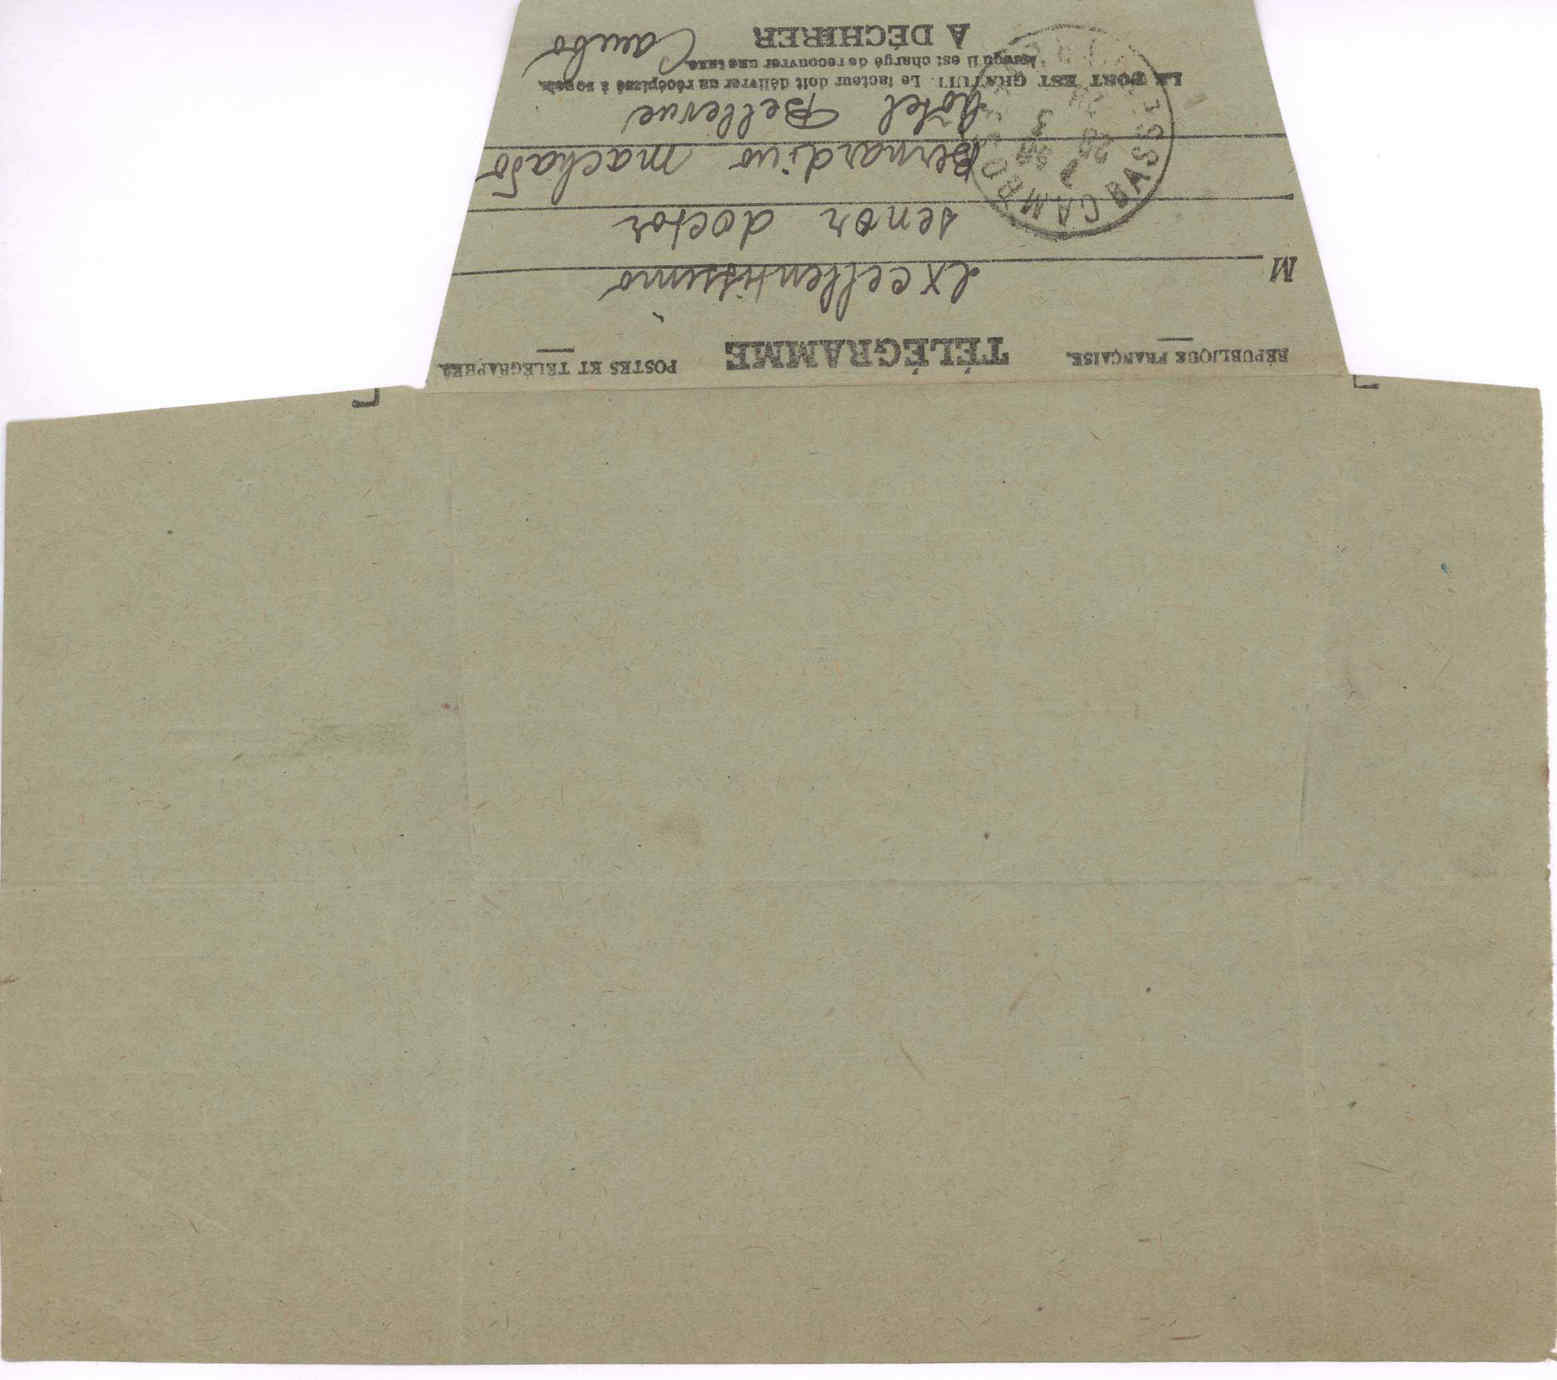 RÉPUBLIQUE FRANÇAISE
TÉLÉGRAMME
POSTES ET TÉLÉGRAPHES
M excellentissimo
senor doctor
Bernardino machado
hôtel Bellevue
LE PORT EST GRATUIT. Le facteur doit délivrer un récépissé à souche
lorsqu'il est chargé de recouvrer une taxe
Cambo
A DÉCHIRER
CAMBO
BASS